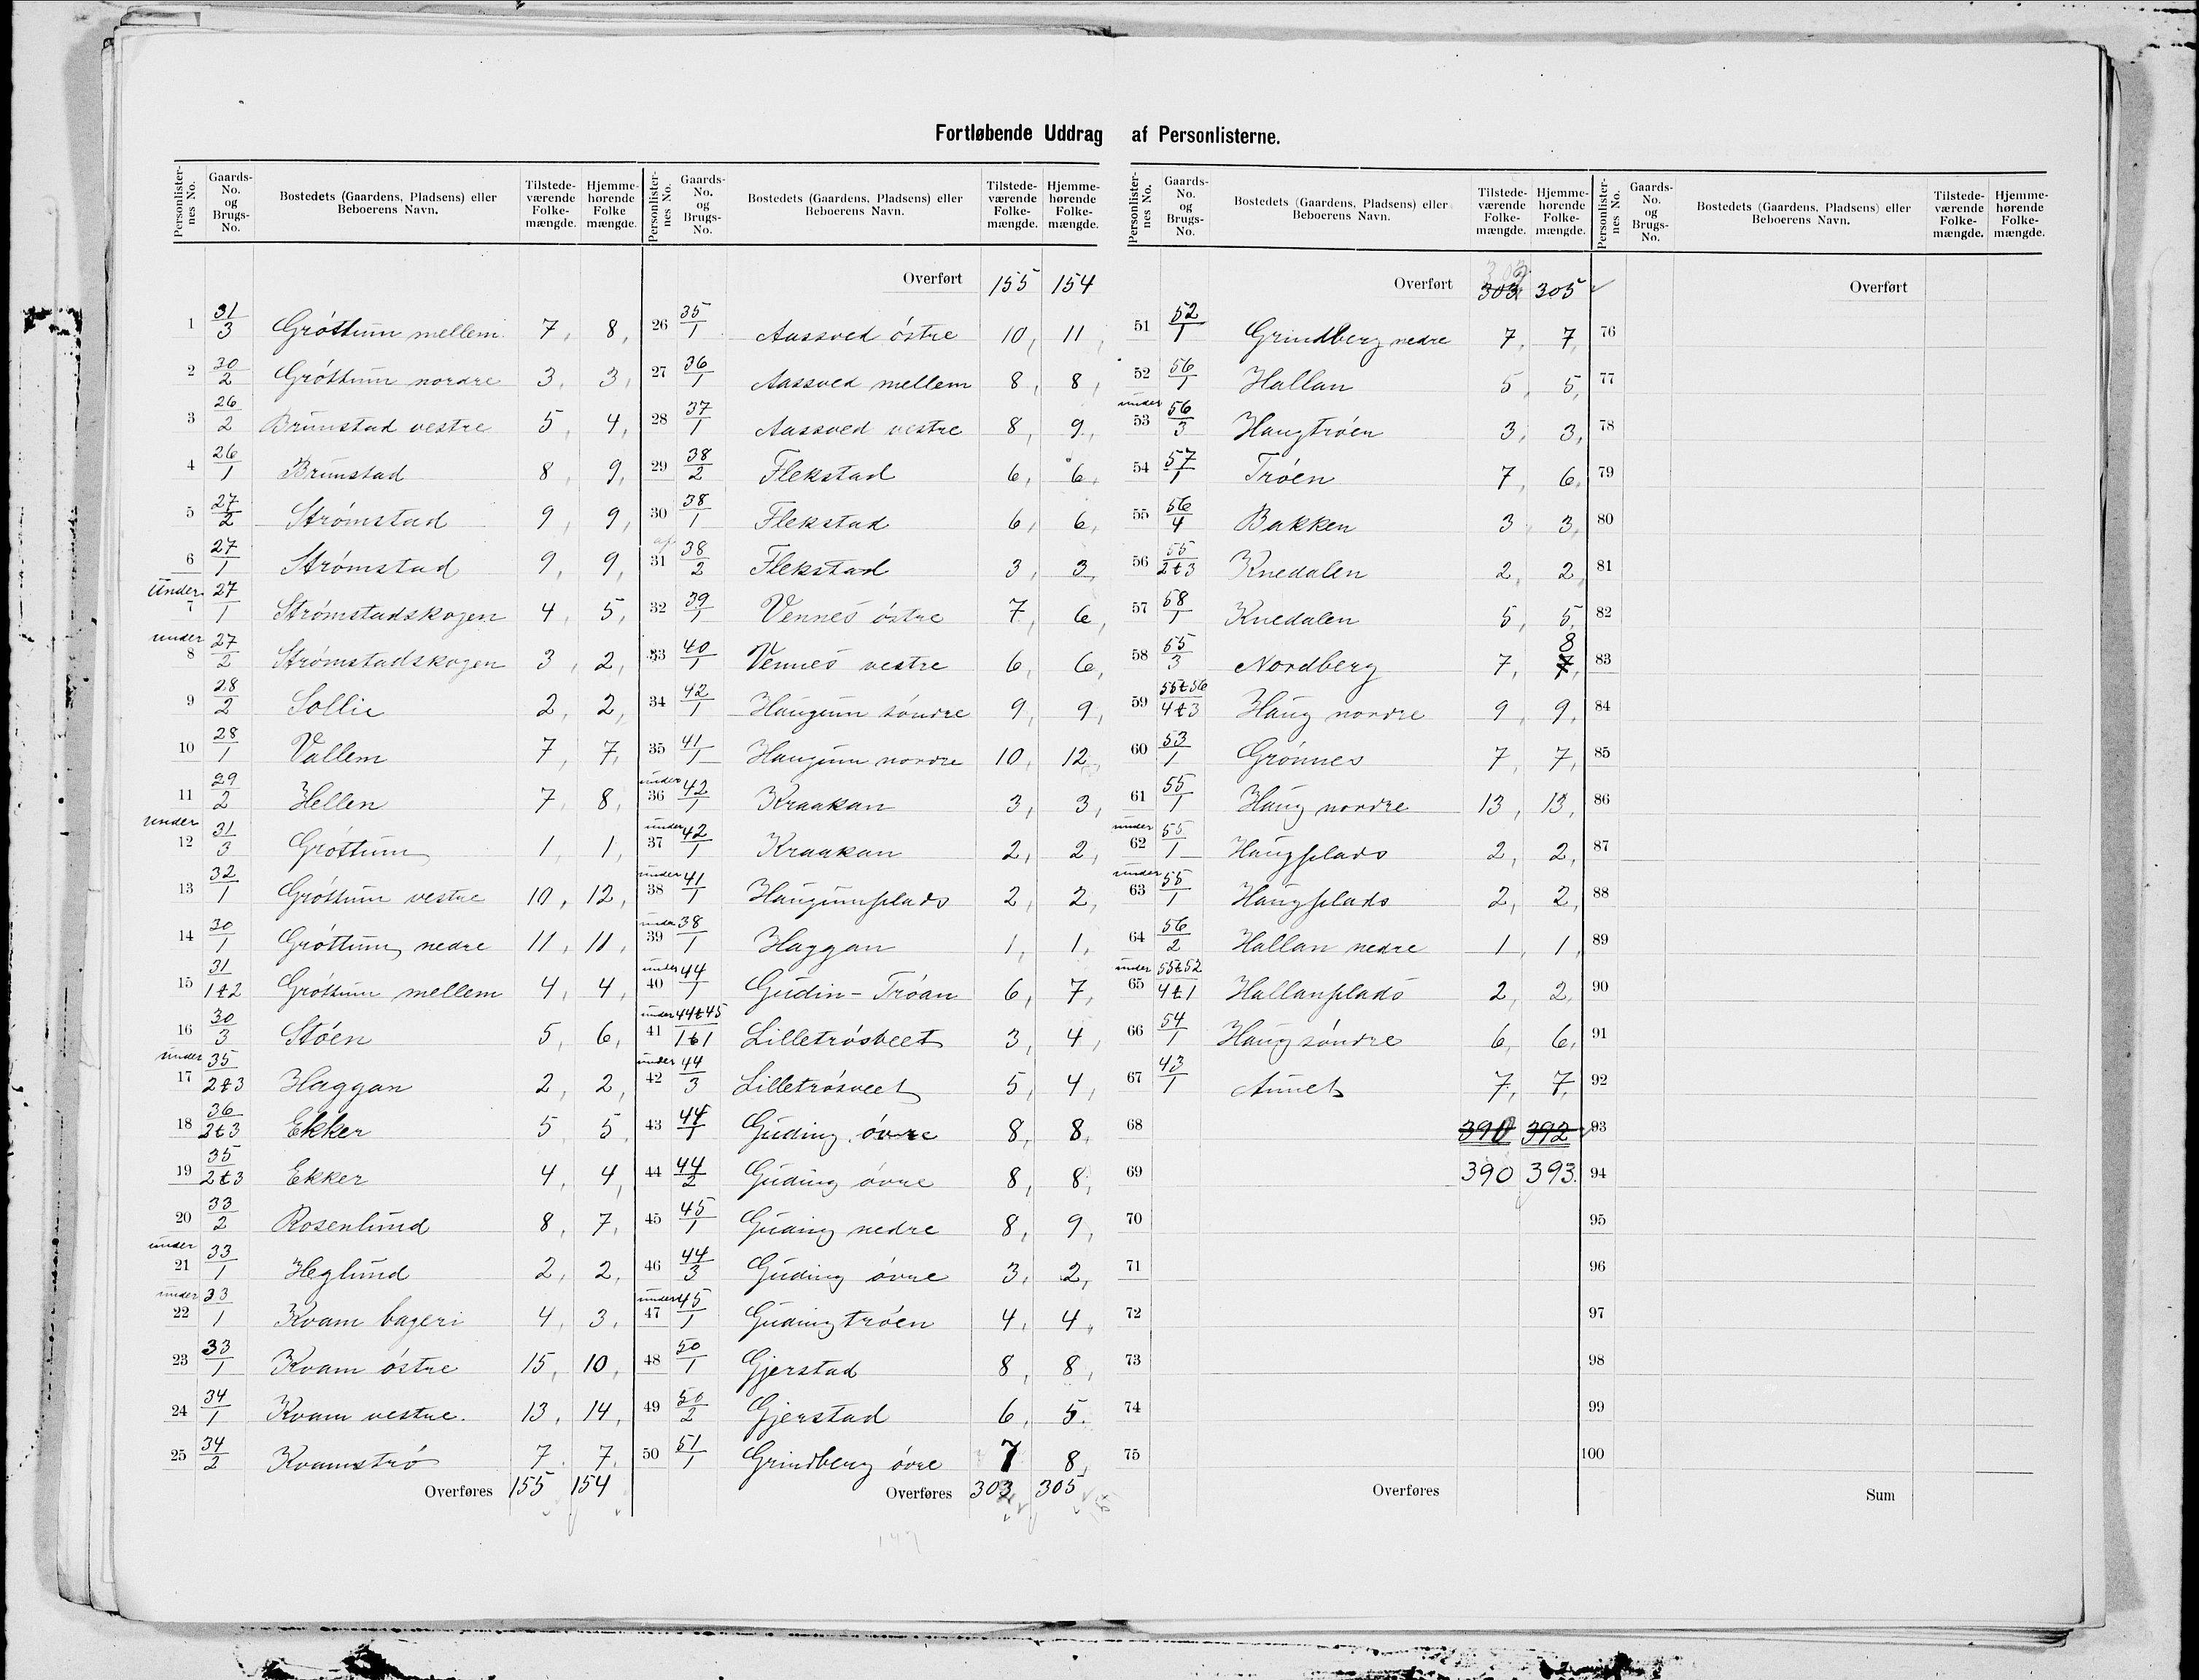 Fortløbende Uddrag af Personlisterne.
Personlister-nes No. Gaards-No. og Brugs-No. Bostedets (Gaardens, Pladsens) eller Beboerens Navn. Tilstede-værende Folke-mængde. Hjemme-hørende Folke mængde.
1 31/3 Gröttum mellem 7, 8,
2 30/2 Gröttum nordre 3, 3,
3 26/2 Brunstad vestre 5, 4,
4 26/1 Brunstad 8, 9,
5 27/2 Strømstad 9, 9,
6 27/1 Strømstad 9, 9,
under 7 27/1 Strømstadskogen 4, 5,
under 8 27/2 Strømstadskogen 3, 2,
9 28/2 Sollie 2, 2,
10 28/1 Vallem 7, 7,
11 29/2 Hellen 7, 8,
under 12 31/3 Gröttum 1, 1,
13 32/1 Gröttum vestre 10, 12,
14 30/1 Gröttum nedre 11, 11,
15 31/1t2 Gröttum mellem 4, 4,
16 30/3 Stöen 5, 6,
under 17 35/2t3 Haggan 2, 2,
18 36/2t3 Ekker 5, 5
19 35/2t3 Ekker 4, 4,
20 33/2 Rosenlund 8, 7,
under 21 33/1 Heglund 2, 2,
under 22 33/1 Kvam bageri 4, 3,
23 33/1 Kvam östre 15, 10,
24 34/1 Kvam vestre. 13, 14,
25 34/2 Kvamströ 7. 7.
Overføres 155 154
Personlister-nes No. Gaards-No. og Brugs-No. Bostedets (Gaardens, Pladsens) eller Beboerens Navn. Tilstede-værende Folke-mængde. Hjemme-hørende Folke-mængde.
Overført 155 154
26 35/1 Aassved östre 10, 11,
27 36/1 Aassved mellem 8, 8,
28 37/1 Aassved vestre 8, 9,
29 38/2 Flekstad 6, 6,
30 38/1 Flekstad 6, 6,
af 31 38/2 Flekstad 3, 3
32 39/1 Vennes östre 7, 6,
33 40/1 Vennes vestre 6, 6,
34 42/1 Haugum söndre 9, 9,
35 41/1 Haugum nordre 10, 12,
under 36 42/1 Kraakan 3, 3,
under 37 42/1 Kraakan 2, 2,
under 38 41/1 Haugumplads 2, 2,
under 39 38/1 Haggan 1, 1,
under 40 44/1 Gudin-Tröan 6, 7,
under 41 44t45/1t1 Lilletrösveet 3, 4,
under 42 44/3 Lilletrösveet 5, 4,
43 44/1 Guding övre 8, 8,
44 44/2 Guding övre 8, 8,
45 45/1 Guding nedre 8, 9,
46 44/3 Guding övre 3, 2,
under 47 45/1 Gudingtröen 4, 4,
48 50/1 Gjerstad 8, 8,
49 50/2 Gjerstad 6, 5.
50 51/1 Grindberg övre 7 8,
Overføres 303 305
Personlister-nes No. Gaards-No. og Brugs-No. Bostedets (Gaardens, Pladsens) eller Beboerens Navn. Tilstede-værende Folke-mængde. Hjemme-hørende Folke-mængde.
Overført 303 305
51 52/1 Grindberg nedre 7, 7,
52 56/1 Hallan 5, 5,
under 53 56/3 Haugtröen 3, 3,
54 57/1 Tröen 7, 6,
55 56/4 Bakken 3, 3,
56 55/2t3 Knedalen 2, 2,
57 58/1 Knedalen 5, 5,
58 55/3 Nordberg 7, 7, 8
59 55t56/4t3 Haug nordre 9, 9,
60 53/1 Grönnes 7, 7,
61 55/1 Haug nordre 13, 13,
under 62 55/1 Haugplads 2, 2,
under 63 55/1 Haugplads 2, 2,
64 56/2 Hallan nedre 1, 1,
under 65 55t52/4t1 Hallanplads 2, 2,
66 54/1 Haug söndre 6, 6,
67 43/1 Aunet 7, 7,
68 390 392
69 390 393.
70
71
72
73
74
75
Overføres
Personlister-nes No. Gaards-No. og Brugs-No. Bostedets (Gaardens, Pladsens) eller Beboerens Navn. Tilstede-værende Folke-mængde. Hjemme-hørende Folke-mængde.
Overført
76
77
78
79
80
81
82
83
84
85
86
87
88
89
90
91
92
93
94
95
96
97
98
99
100
Sum